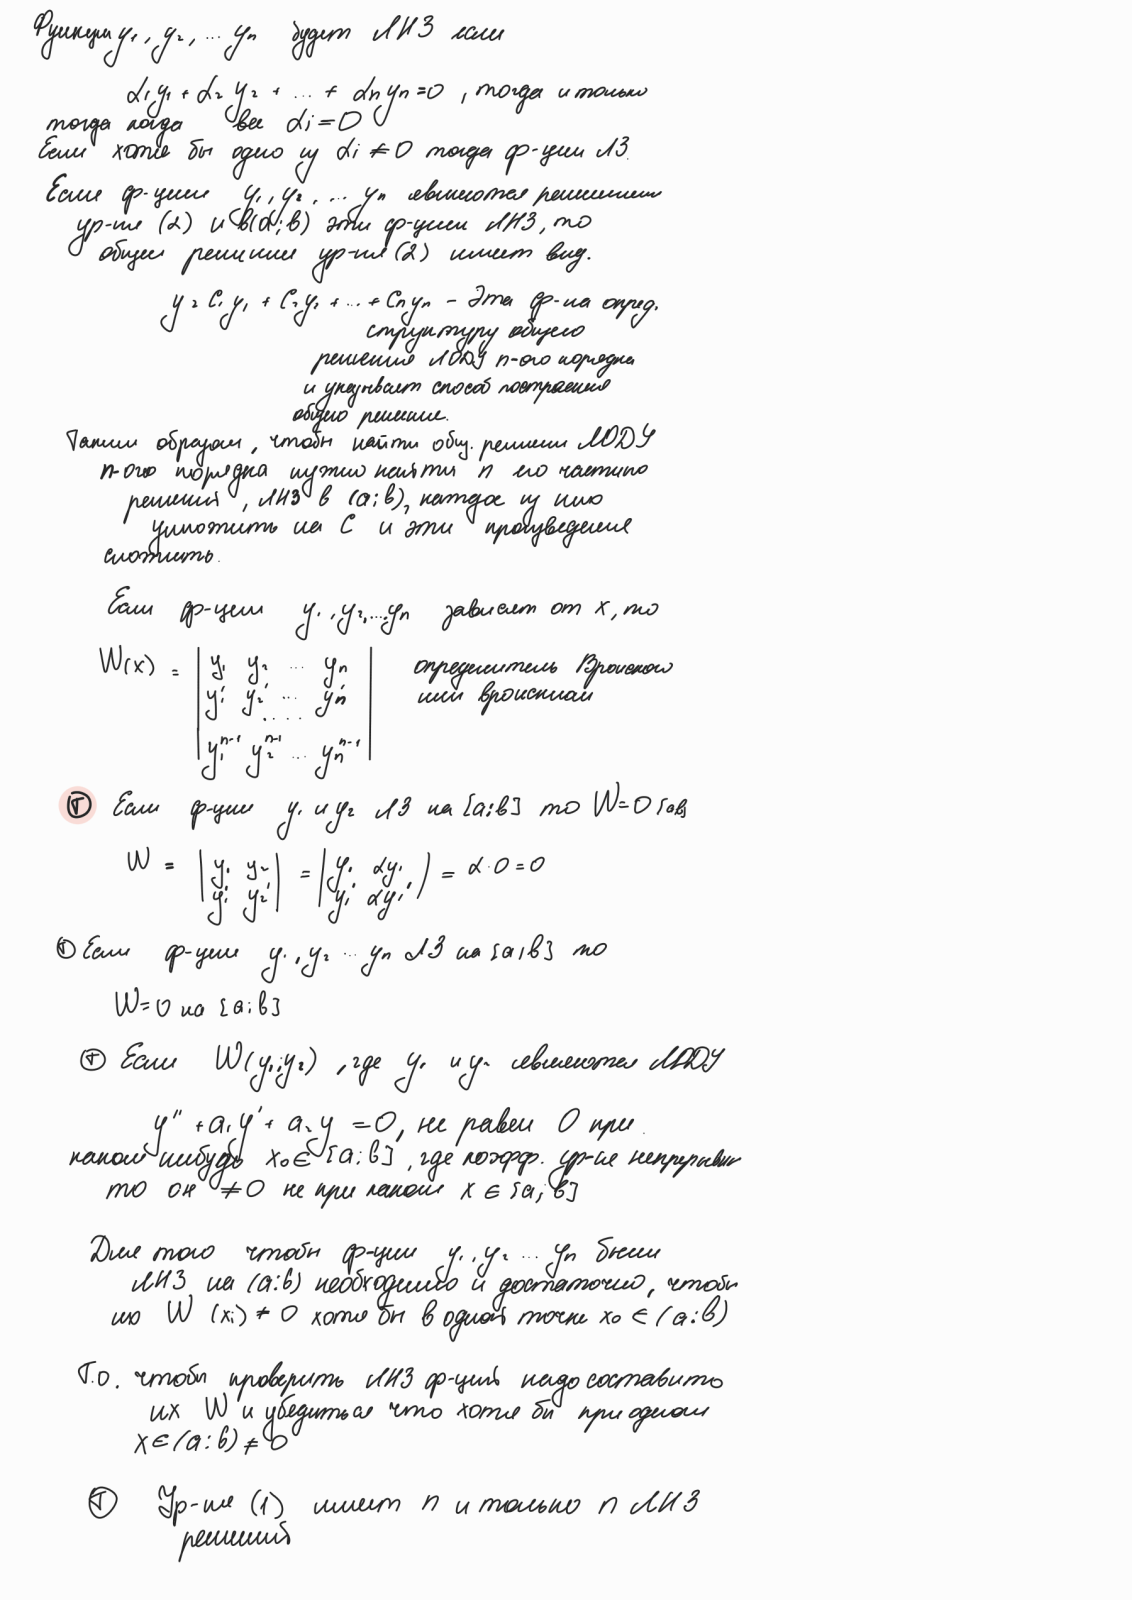 Функции y₁, y₂, ... yₙ будет ЛНЗ если
α₁y₁ + α₂y₂ + ... + αₙyₙ = 0, тогда и только
тогда когда все αᵢ = 0
Если хотя бы одно из αᵢ ≠ 0 тогда ф-ции ЛЗ.
Если ф-ции y₁, y₂, ... yₙ являются решением
ур-ия (2) и в(a;в) эти ф-ции ЛНЗ, то
общее решение ур-ия (2) имеет вид.
y = C₁y₁ + C₂y₂ + ... + Cₙyₙ - Эта ф-ла опред.
структуру общего
решения ЛОДУ n-ого порядка
и указывает способ построения
общего решение.
Таким образом, чтобы найти общ. решении ЛОДУ
n-ого порядка нужно найти n его частных
решений, ЛНЗ в (a;в), каждое из них
умножить на C и эти произведения
сложить.
Если ф-ции y₁, y₂, ... yₙ зависят от x, то
W(x) = | y₁ y₂ ... yₙ | определитель Вронского
| y₁' y₂' ... yₙ' | или вронскиан
. . . .
| y₁ⁿ⁻¹ y₂ⁿ⁻¹ ... yₙⁿ⁻¹ |
Т Если ф-ции y₁ и y₂ ЛЗ на [a;в] то W=0 [aв]
W = | y₁ y₂ | = | y₁ αy₁ ) = α·0 = 0
| y₁' y₂' | | y₁' αy₁' )
Т Если ф-ции y₁, y₂ ... yₙ ЛЗ на [a;в] то
W=0 на [a;в]
Т Если W(y₁;y₂), где y₁ и y₂ являются ЛОДУ
y'' + a₁y' + a₂y = 0, не равен 0 при
каком нибудь x₀∈[a;в], где коэфф. ур-ия непрерывны
то он ≠0 не при каком x∈[a;в]
Для того чтобы ф-ции y₁, y₂ ... yₙ были
ЛНЗ на (a;в) необходимо и достаточно, чтобы
их W (xᵢ) ≠ 0 хотя бы в одной точке x₀ ∈ (a;в)
Т.о. чтобы проверить ЛНЗ ф-ций надо составить
их W и убедиться что хотя бы при одном
x∈(a;в) ≠ 0
Т Ур-ие (1) имеет n и только n ЛНЗ
решений